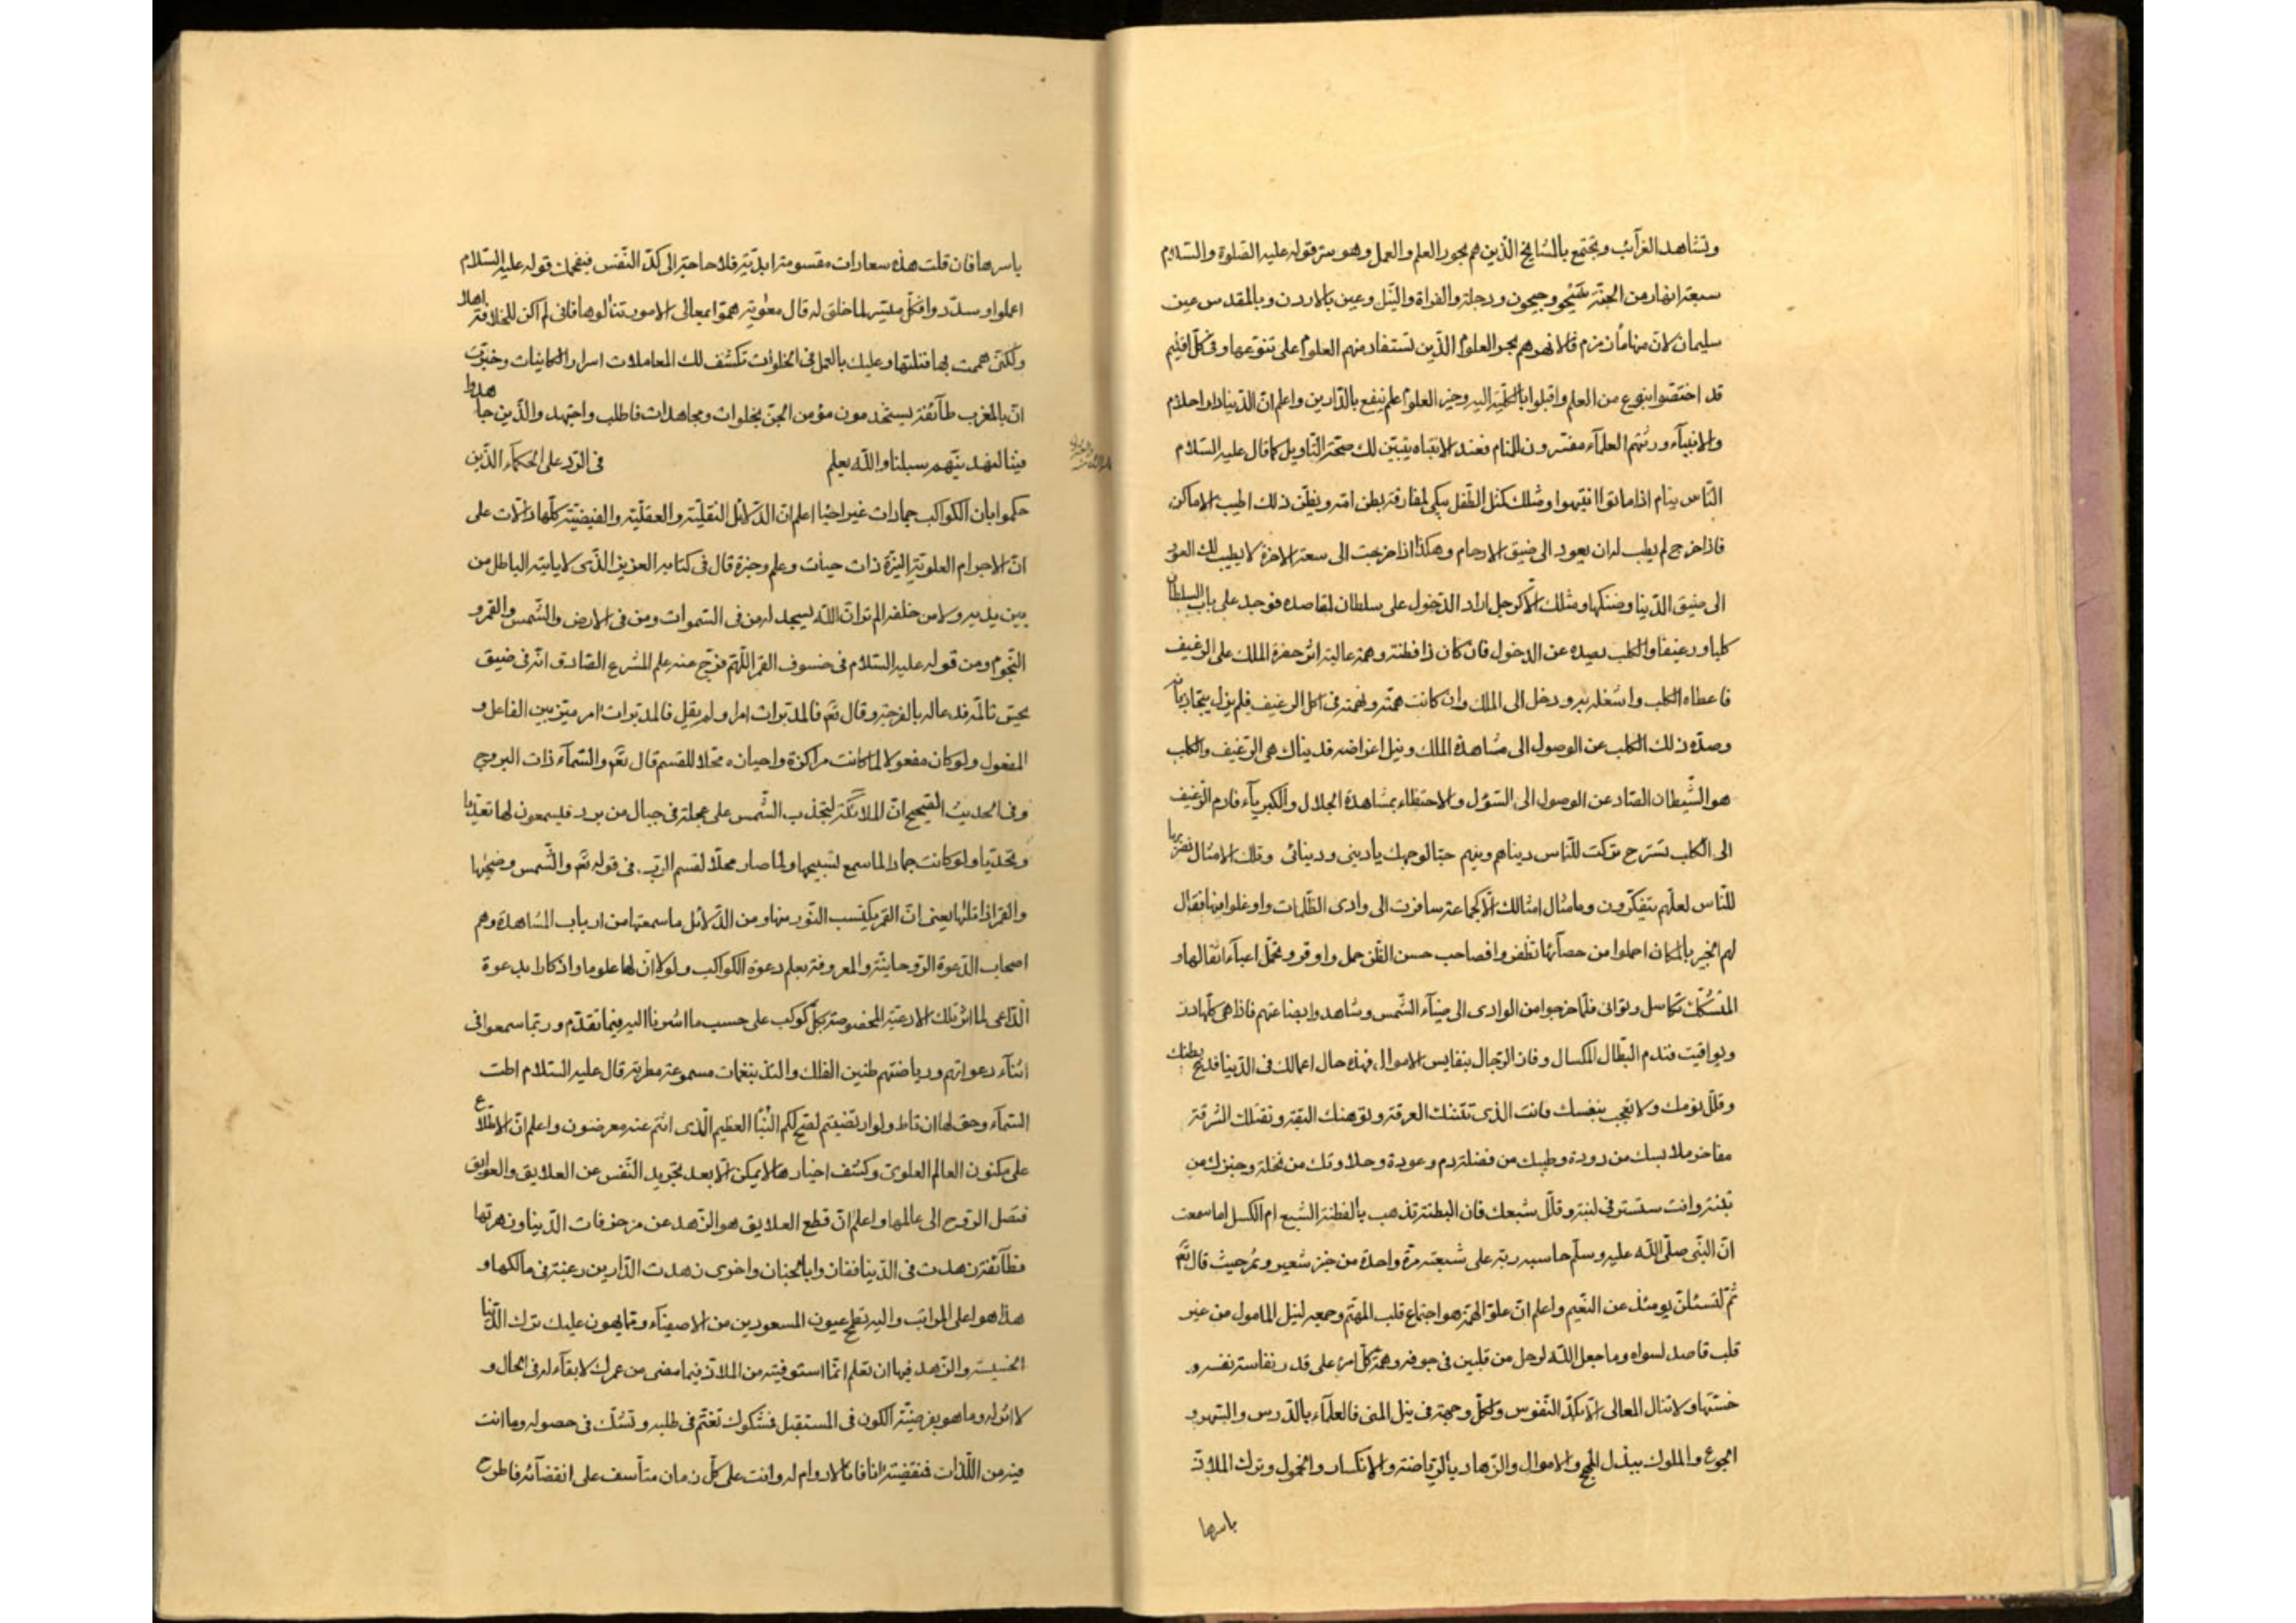 وتشاهد الغرائب وتجتمع بالمشايخ الذين هم بحور العلم والعمل وهو سر قوله عليه الصلوة والسلام
سبعة انهار من الجنة سيحو وجيحون ودجلة والفراة والنيل وعين بالاردن وبالمقدس عين
سليمان لان منها ماء زمزم فالانهر هم بحور العلوم الذين تستفاد منهم العلوم على تنوعها وفى كل اقليم
قد اختصوا بنوع من العلم واقبلوا بالكلية اليه وخير العلوم علم ينفع بالدارين واعلم ان الدنيا دار احلام
والانبياء وورثتهم العلماء مفسرون للمنام فعند الانتباه يتبين لك صحة التاويل كما قال عليه السلام
الناس ينام اذا ماتوا انتبهوا ومثلك كمثل الطفل يبكى لمفارقة بطن امه ويظن ذلك اطيب الاماكن
فاذا خرج لم يطب له ان يعود الى ضيق الارحام وهكذا اذا خرجت الى سعة الاخرة لا يطيب لك العود
الى ضيق الدنيا وضنكها ومثلك الا كرجل اراد الدخول على سلطان لمقاصده فوجد على باب السلطان
كلبا ورغيفا والكلب يصده عن الدخول فان كان ذا فطنة وهمة عالية اثر حضرة الملك على الرغيف
فاعطاه الكلب واشغله به ودخل الى الملك وان كانت همته ونهمته فى اكل الرغيف فلم يزل يتجاذبانه
وصده ذلك الكلب عن الوصول الى مشاهدة الملك ونيل اغراضه فدنياك هى الرغيف والكلب
هو الشيطان الصاد عن الوصول الى السؤل والاحتظاء بمشاهدة الجلال والكبرياء فارم الرغيف
الى الكلب تسترح تركت للناس دنياهم ودينهم حبا لوجهك يا دينى ودنيائى وتلك الامثال نضربها
للناس لعلهم يتفكرون وما مثال امثالك الا كجماعة سافرت الى وادى الظلمات واوغلوا فيها فقال
لهم الخبير بالمكان احملوا من حصائها تظفروا فصاحب حسن الظن حمل واوقر وتحمل اعباء اثقالها و
المتشكك تكاسل وتوانى فلما خرجوا من الوادى الى ضياء الشمس وشاهدوا بضاعتهم فاذا هى كلها درر
ويواقيت فندم البطال المكسال وفاز الرجال بنفايس الاموال فهذه حال اعمالك فى الدنيا فديح بطنك
وقلل نومك ولا تعجب بنفسك فانت الذى تنتنك العرقة وتوهنك البقة وتقتلك الشرقة
مفاخر ملابسك من دودة وطيبك من فضلة دم وعودة وحلاوتك من نحلة وخبزك من
تبنة وانت ستستر فى لبنة وقلل شبعك فان البطنة تذهب بالفطنة الشبع ام الكسل اما سمعت
ان النبى صلى الله عليه وسلم حاسبه ربه على شبعته مرة واحدة من خبز شعير وتمر حيث قال تعم
ثم لتسئلن يومئذ عن النعيم واعلم ان علو الهمة هو اجتماع قلب المهتم وجمعه لنيل المامول من غير
قلب قاصد لسواه وما جعل الله لرجل من قلبين فى جوفه وهمة كل امرء على قدر نفاسة نفسه و
خستها ولا تنال المعالى الا بكد النفوس ولكل وجهة فى نيل المنى فالعلماء بالدرس والسهر و
الجوع والملوك ببذل المهج والاموال والزهاد بالرياضة والانكسار والخمول وترك الملاذ
باسرها
باسرها فان قلت هذه سعادات مقسومة ابدية فلا حاجة الى كد النفس فيفحمك قوله عليه السلام
اعملوا وسددوا فكل ميسر لما خلق له قال معوية هموا بمعالى الامور تنالوها فانى لم اكن للخلافة اهلا
ولكنى هممت بها فنلتها وعليك بالعمل فى الخلوات تكشف لك المعاملات اسرار وخبرت
ان بالمغرب طائفة يستخدمون مؤمن الجن بخلوات ومجاهدات فاطلب واجتهد والذين جاهدوا
فينا لنهدينهم سبلنا والله يعلم فى الرد على الحكماء الذين
حكموا بان الكواكب جمادات غير احيا اعلم ان الدلائل النقلية والعقلية والفيضية كلها دالات على
ان الاجرام العلوية النيرة ذات حيات وعلم وخبرة قال فى كتابه العزيز الذى لا ياتيه الباطل من
بين يديه ولا من خلفه الم تر ان الله يسجد له من فى السموات ومن فى الارض والشمس والقمر و
النجوم ومن قوله عليه السلام فى خسوف القمر اللهم فرج عنه علم المشرع الصادق انه فى ضيق
يحس تالمه فدعا له بالفرجة وقال تعم فالمدبرات امرا ولم يقل فالمدبرات امر ميز بين الفاعل و
المفعول ولو كان مفعولا لما كانت مراكزه واحيانه محلا للقسم قال تعم والسماء ذات البروج
وفى الحديث الصحيح ان الملائكة لتجذب الشمس على عجلة فى جبال من برد فيسمعون لها تعديا
وتحديا ولو كانت جمادا لما سمع تسبيحها ولما صار محلا لقسم الرب فى قوله تعم والشمس وضحيها
والقمر اذا تلها يعنى ان القمر يكتسب النور منها ومن الدلائل ما سمعتها من ارباب المشاهدة وهم
اصحاب الدعوة الروحانية والمعروفة بعلم دعوة الكواكب ولولا ان لها علوما واذكارا بدعوة
الداعى لما اثر تلك الادعية المخصوصة بكل كوكب على حسب ما اشرنا اليه فيما تقدم وربما سمعوا فى
اثناء دعواتهم ورياضتهم طنين الفلك والتذ بنغمات مسموعة مطربة قال عليه السلام اطت
السماء وحق لها ان تاط ولو ارتضيتم لفتح لكم النبا العظيم الذى انتم عنه معرضون واعلم ان الاطلاع
على مكنون العالم العلوى وكشف اخبارها لا يمكن الا بعد تجريد النفس عن العلايق والعوايق
فتصل الروح الى عالمها واعلم ان قطع العلايق هو الزهد عن مزخرفات الدنيا وزهرتها
فطائفة زهدت فى الدنيا ففازوا بالجنان واخرى زهدت الدارين رغبة فى مالكها و
هذا هو اعلى المراتب واليه تطمح عيون المسعودين من الاصفياء ومما يهون عليك ترك الدنيا
الخسيسة والزهد فيها ان تعلم انما استوفيته من الملاذ فيما مضى من عمرك لا بقاء له فى الحال و
لا اثر له وما هو بفرضية الكون فى المستقبل فشكوك تغتم فى طلبه وتشك فى حصوله وما انت
فيه من اللذات فنقضية انا فانا لا دوام له وانت على كل زمان متأسف على انقضائه فاطرح